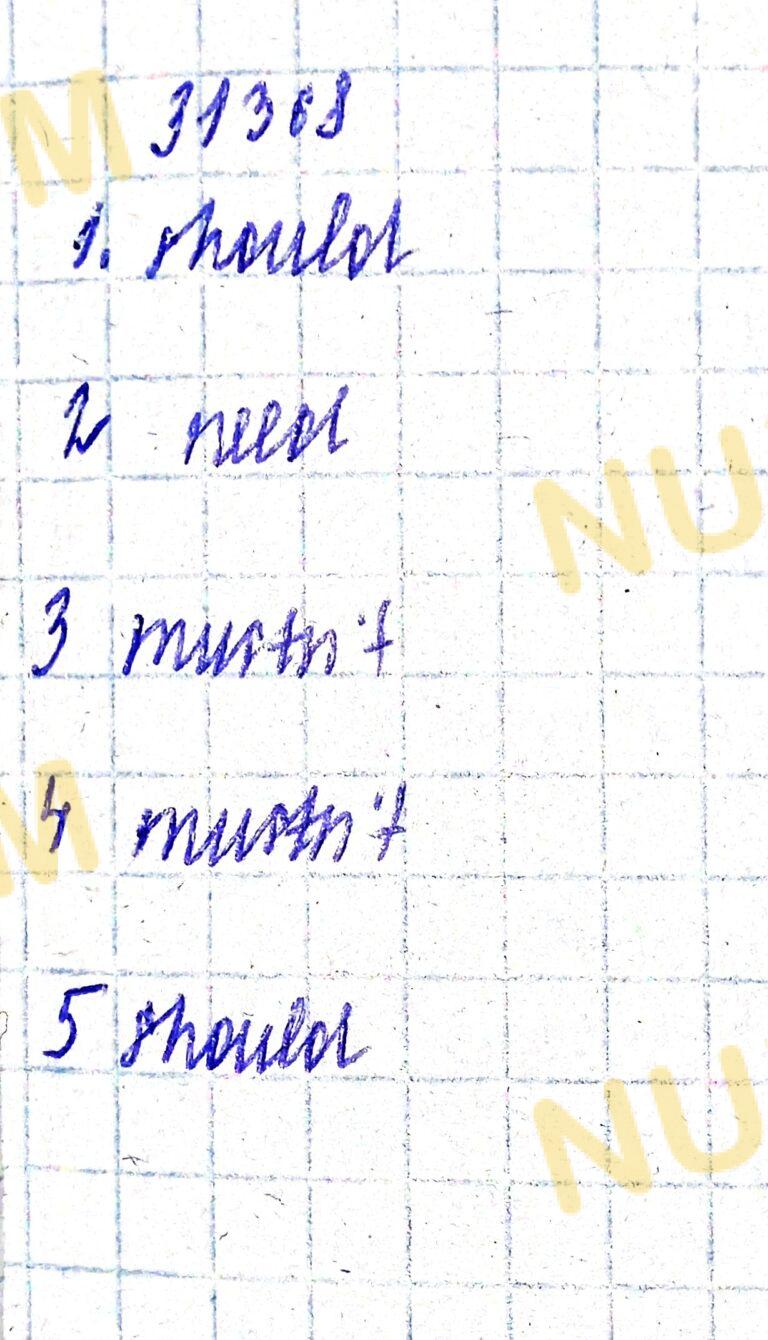 31308
1. should
2 need
3 mustn't
4 mustn't
5 should
M
NU
M
NU